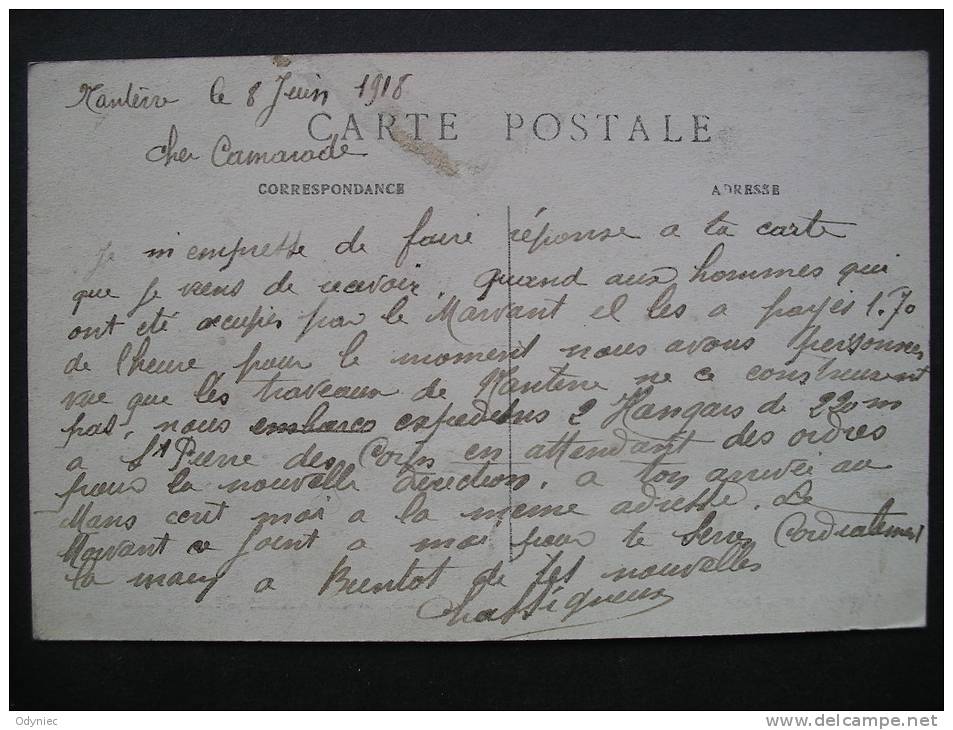 Nanterre le 8 Juin 1918
CARTE POSTALE
cher Camarade
CORRESPONDANCE ADRESSE
Je m'empresse de faire réponse a ta carte
que je viens de recevoir. quand aux hommes qui
ont été occupés par le Marvant il les a payés 1.70
de l'heure pour le moment nous avons personnes
vue que les travaux de Nanterre ne ce construisent
pas, nous embarco expedions 2 Hangars de 220 m
a St Pierre des Corps en attendant des ordres
pour la nouvelle direction. a ton arrivée au
Mans ecrit moi a la meme adresse. Le
Marvant ce joint a moi pour te serrer Cordialement
la main a Bientot de tes nouvelles
Chassigneux
Odyniec www.delcampe.net